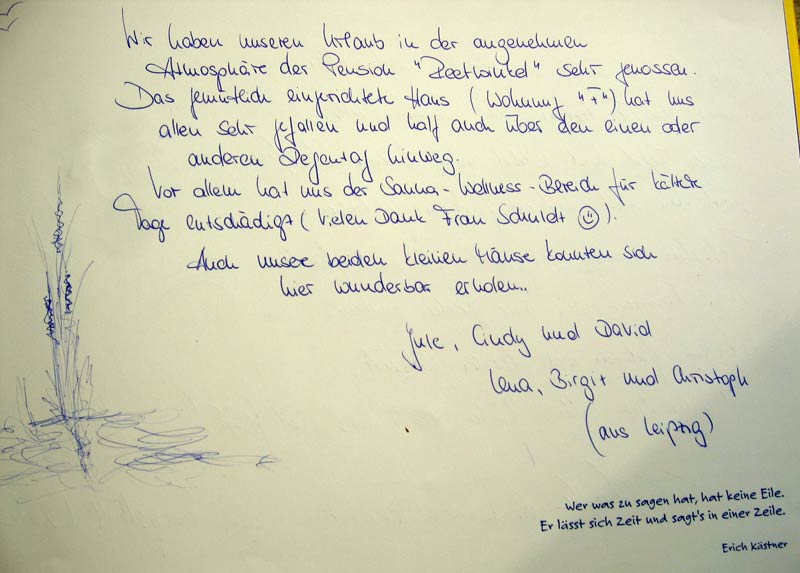 Wir haben unseren Urlaub in der angenehmen
Atmosphäre der Pension "Reetwinkel" sehr genossen.
Das gemütlich eingerichtete Haus (Wohnung "I") hat uns
allen sehr gefallen und half auch über den einen oder
anderen Regentag hinweg.
Vor allem hat uns der Sauna-Wellness-Bereich für kältere
Tage entschädigt (Vielen Dank Frau Schuldt ☺).
Auch unsere beiden kleinen Mäuse konnten sich
hier wunderbar erholen..
Jule, Cindy und David
Lena, Birgit und Christoph
(aus Leipzig)
Wer was zu sagen hat, hat keine Eile.
Er lässt sich Zeit und sagt's in einer Zeile.
Erich Kästner